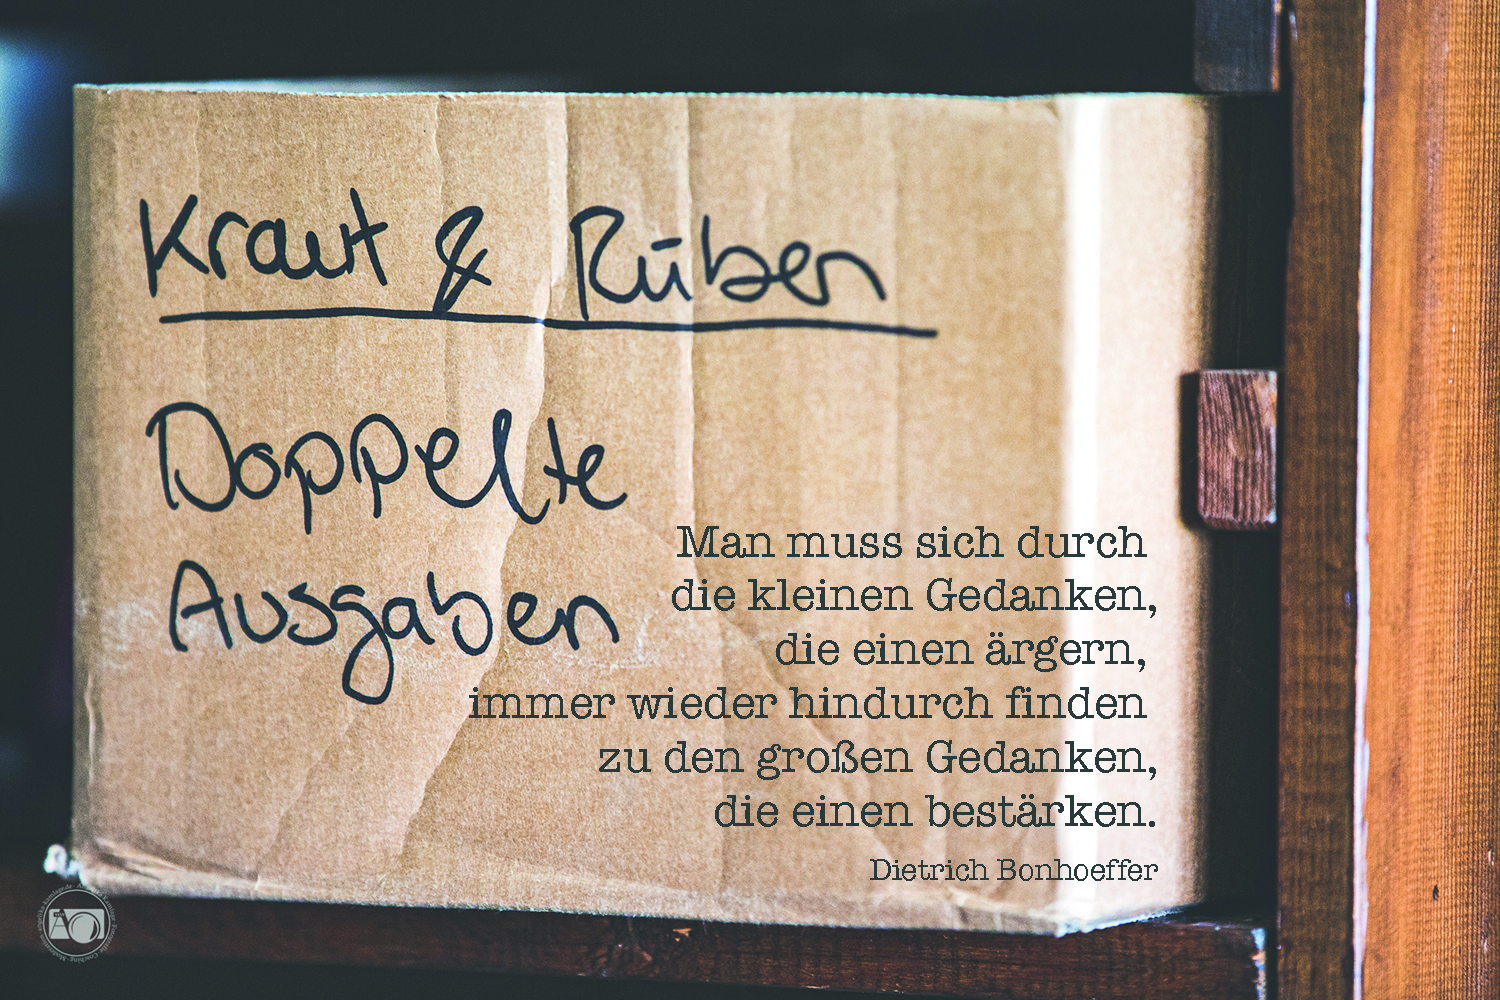 Kraut & Rüben
Doppelte
Ausgaben
Man muss sich durch
die kleinen Gedanken,
die einen ärgern,
immer wieder hindurch finden
zu den großen Gedanken,
die einen bestärken.
Dietrich Bonhoeffer